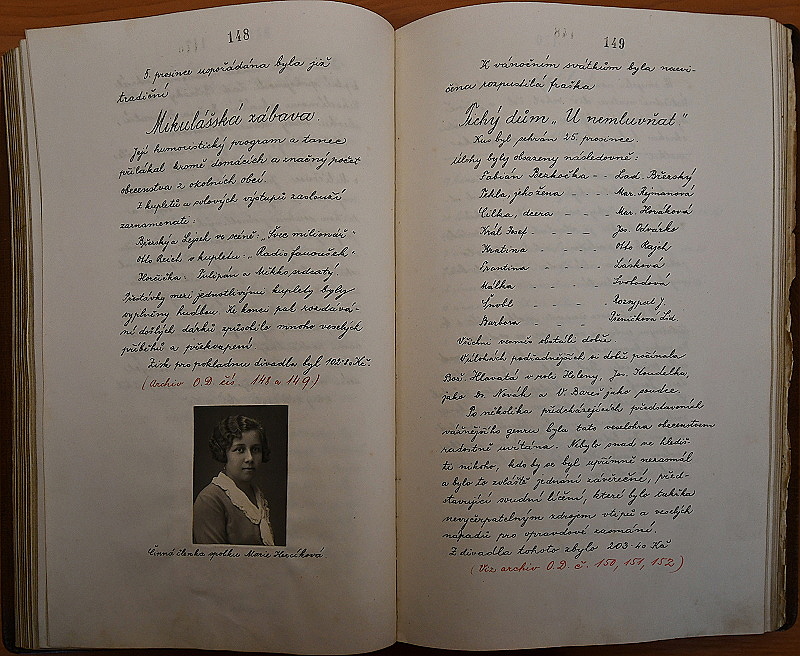 148
5. prosince uspořádána byla již
tradiční
Mikulášská zábava.
Její humoristický program a tanec
přilákal kromě domácích a značný počet
obecenstva z okolních obcí.
Z kupletů a solových výstupů zaslouží
zaznamenati:
Břerský a Lejsek ve scéně: „Švec milionář"
Otto Reich v kupletu: „Radiofanoušek"
Horčička: Tulipán a Mikko srdcatý.
Přestávky mezi jednotlivými kuplety byly
vyplněny hudbou. Ke konci pak rozdává-
ní došlých dárků způsobilo mnoho veselých
příběhů a překvapení.
Zisk pro pokladnu divadla byl 102·80 Kč.
(Archiv O.D. čís. 148 a 149)
Činná členka spolku Marie Kercíková.
149
K vánočním svátkům byla nacvi-
čena rozpustilá fraška
Tichý dům „U nemluvňat"
Kus byl sehrán 25. prosince.
Úlohy byly obsazeny následovně:
Fabián Beakočka - - Lad. Břerský
Tekla, jeho žena - - - Mar. Rejmanová
Cilka, dcera - - - Mar. Horáková
Král Josef - - - - Jos. Odvárko
Kratina - - - - Otto Rajch
Frantina - - - - Lásková
Málka - - - - Svobodová
Šnobl - - - - Rozsypal J.
Barbora - - - - Pšeničková Lid.
Všichni vesměs obstáli dobře.
V úlohách podřadnějších si dobře počínala
Bož. Hlavatá v role Heleny, Jos. Houdelka,
jako Dr. Novák a V. Bareš jako soudce.
Po několika předcházejících představeních
vážnějšího genru byla tato veselohra obecenstvem
radostně uvítána. Nebylo snad ve hlediš-
ti nikoho, kdo by se byl upřímně nezasmál
a bylo to zvláště jednání závěrečné, před-
stavující soudní líčení, které bylo takřka
nevyčerpatelným zdrojem vtipů a veselých
nápadů pro opravdové zasmání.
Z divadla tohoto zbylo 203·40 Kč
(Viz archiv O.D. č. 150, 151, 152)